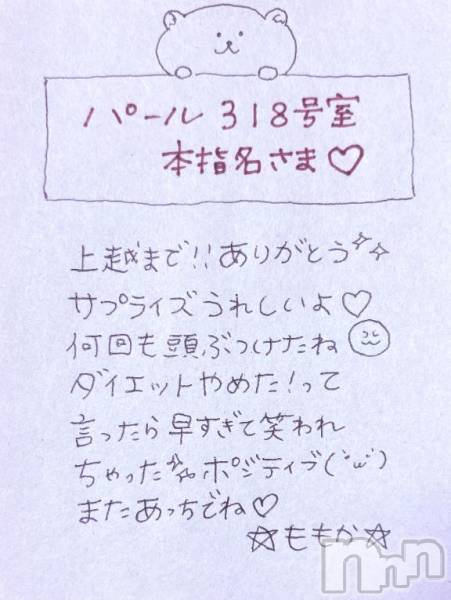 パール 318号室
本指名さま♡
上越まで!!ありがとう
サプライズうれしいよ♡
何回も頭ぶつけたね
ダイエットやめた!って
言ったら早すぎて笑われ
ちゃった ポジティブ(˙ω˙)
またあっちでね♡
☆ももか☆
nnn